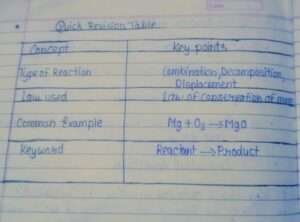 Quick Revision Table
Concept Key points
Type of Reaction Combination, Decomposition,
Displacement
Law used Law of Conservation of mass
Common Example Mg + O₂ → MgO
Keyword Reactant → Product